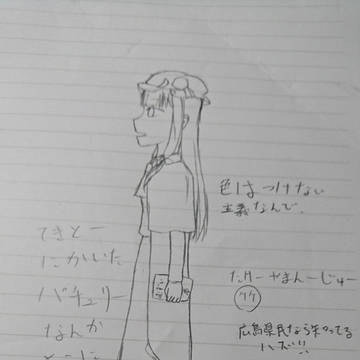 色はつけない
主義なんで、
てきとー
にかいた
パチュリー
なんか
たりーやまんーじゅー
広島県民なら知ってる
ハズ!!